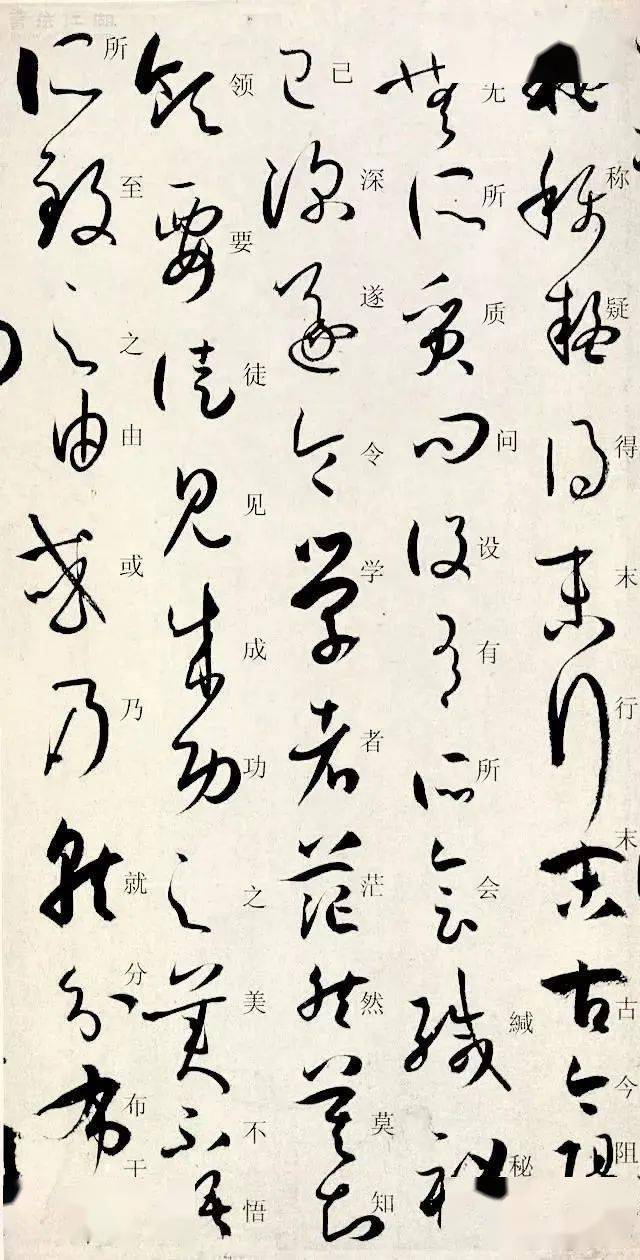 称疑得末行末古今阻
无所质问设有所会緘秘
已深遂令学者茫然莫知
领要徒见成功之美不悟
所至之由或乃就分布